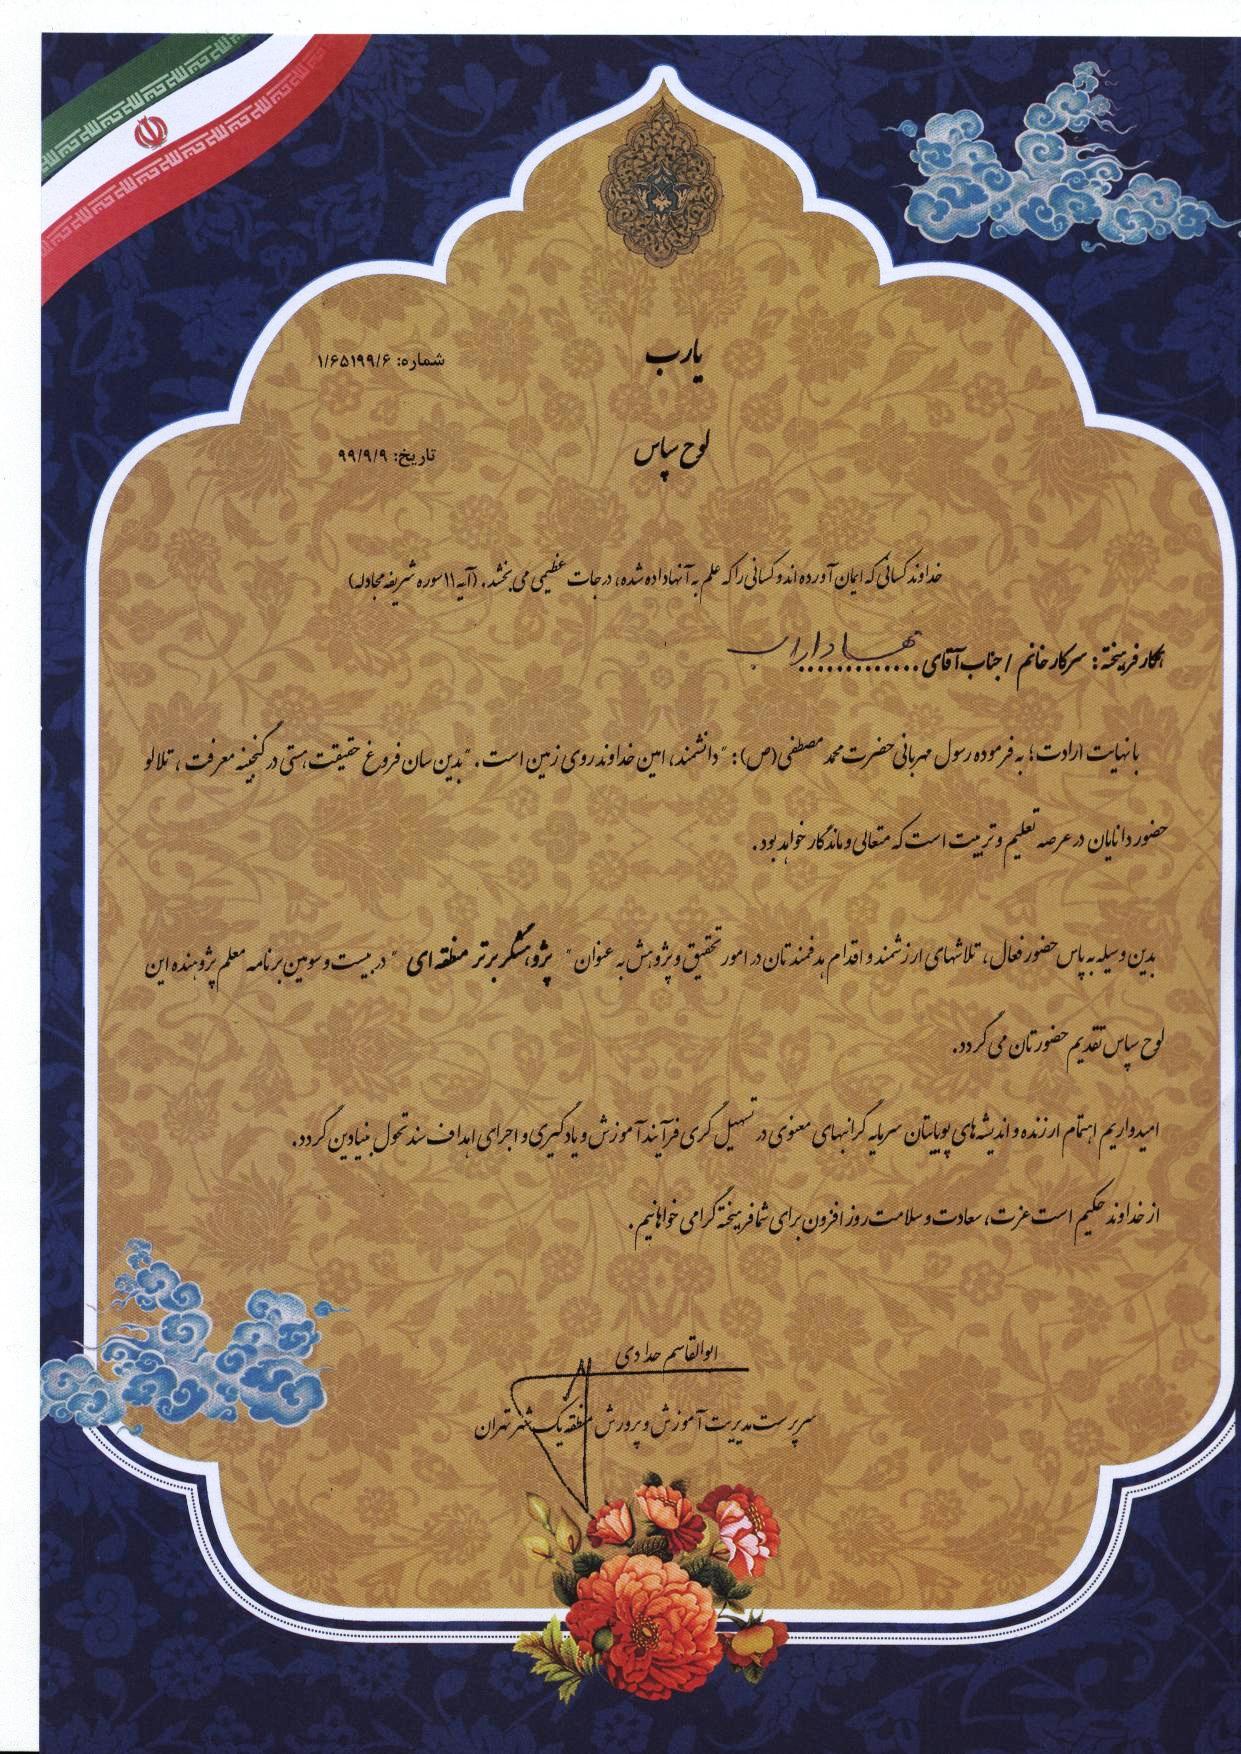 یارب
شماره: ۱/۶۵۱۹۹/۶
لوح سپاس
تاریخ: ۹۹/۹/۹
خداوند کسانی که ایمان آورده اند و کسانی را که علم به آنها داده شده، درجات عظیمی می بخشد. (آیه ۱۱ سوره شریفه مجادله)
همکار فرهیخته: سرکار خانم / جناب آقای ............ داراب
با نهایت ارادت؛ به فرموده رسول مهربانی حضرت محمد مصطفی (ص): "دانشمند، امین خداوند روی زمین است." بدین سان فروغ حقیقت هستی در گنجینه معرفت، تلالو
حضور دانایان در عرصه تعلیم و تربیت است که متعالی و ماندگار خواهد بود.
بدین وسیله به پاس حضور فعال، تلاشهای ارزشمند و اقدام هدفمندتان در امور تحقیق و پژوهش به عنوان " پژوهشگر برتر منطقه ای " در بیست و سومین برنامه معلم پژوهنده این
لوح سپاس تقدیم حضورتان می گردد.
امیدواریم اهتمام ارزنده و اندیشه های پویایتان سرمایه گرانبهای معنوی در تسهیل گری فرآیند آموزش و یادگیری و اجرای اهداف سند تحول بنیادین گردد.
از خداوند حکیم است عزت، سعادت و سلامت روز افزون برای شما فرهیخته گرامی خواهانیم.
ابوالقاسم حدادی
سرپرست مدیریت آموزش و پرورش منطقه یک شهر تهران